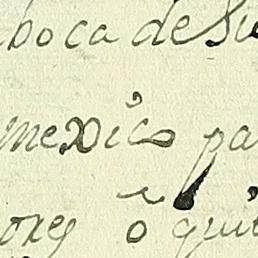 boca de su
mexico pa
ores o qui